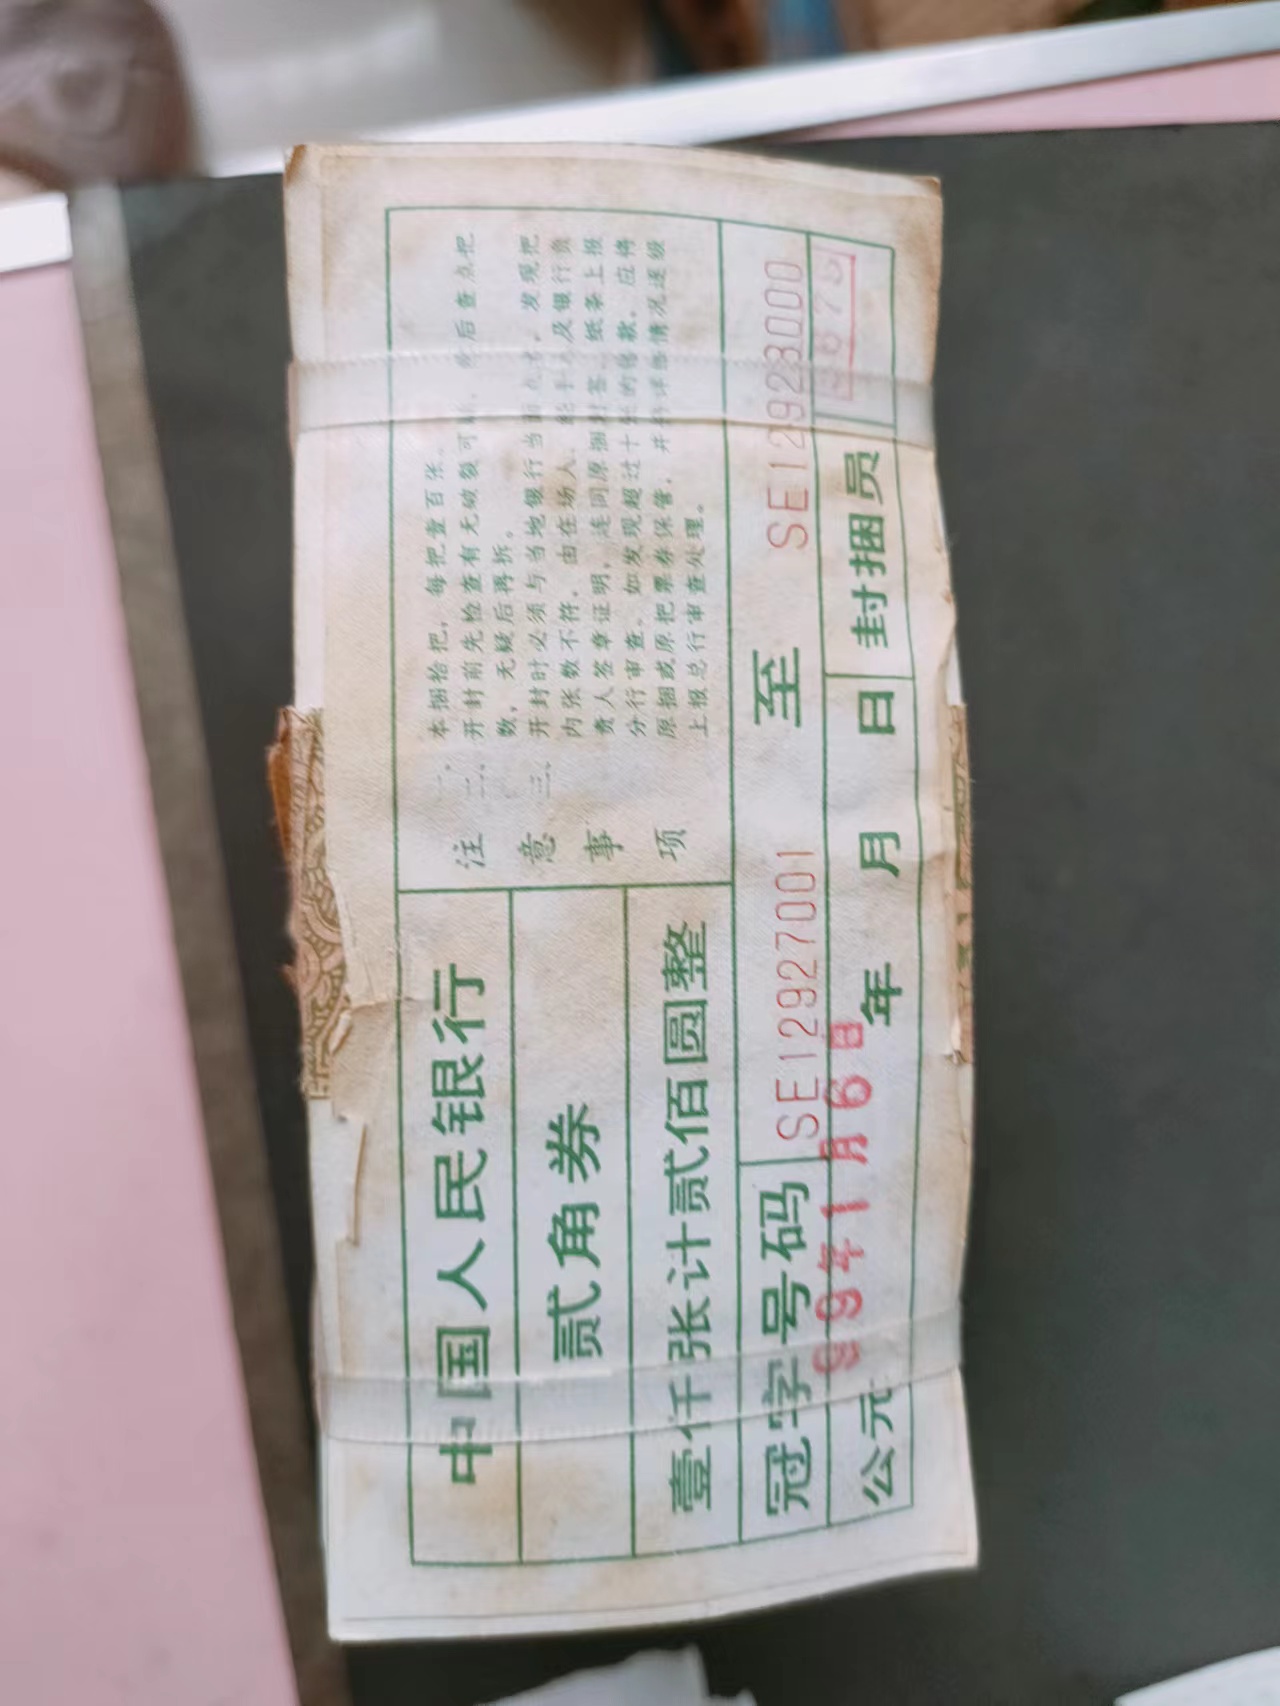 中国人民银行
贰角券
壹仟张计贰佰圆整
注意事项
一、本捆拾把，每把壹百张。
二、开封前先检查有无破裂可 后查点把
数，无疑后再拆。
三、开封时必须与当地银行当面点 发现把
内张数不符，由在场人、经手人及银行负
责人签章证明，连同原捆封签、纸条上报
分行审查。如发现超过十张的错款，应将
原捆或原把票券保管，并将详细情况逐级
上报总行审查处理。
冠字号码 SE12927001 至 SE12928000
公元 年 月 日 封捆员
99年1月6日